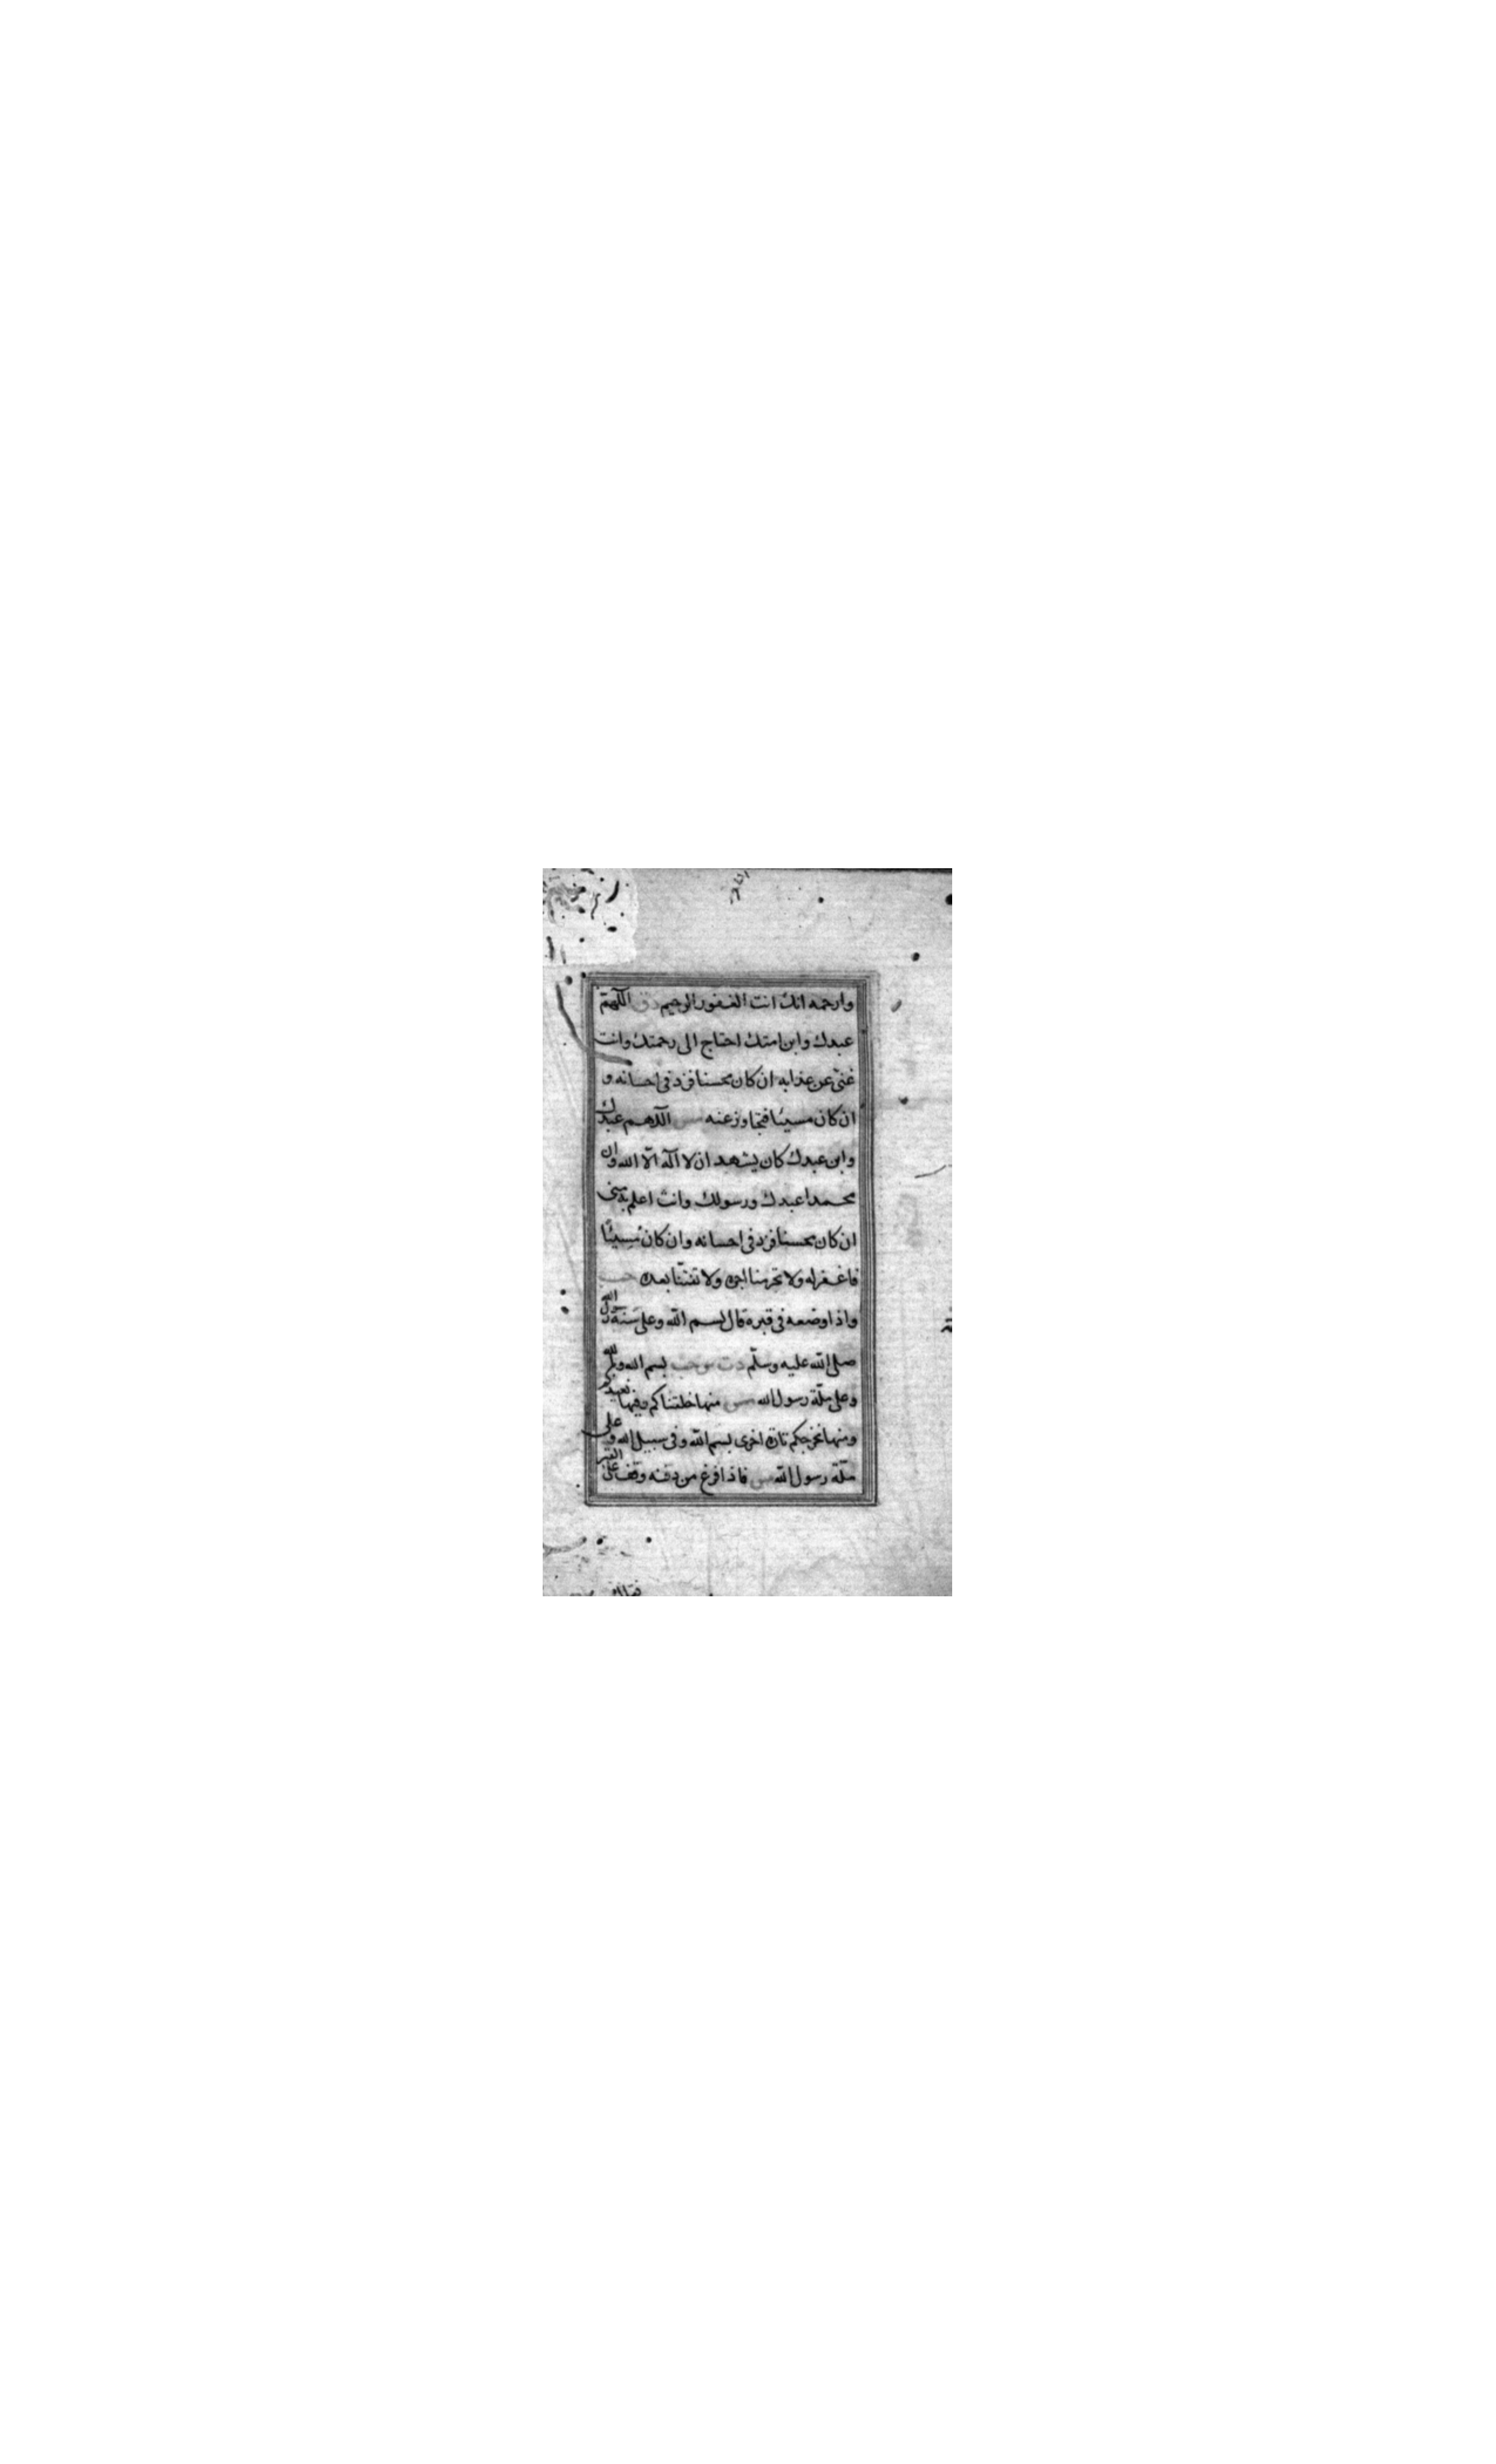 وارحمه انك انت الغفور الرحيم دق اللهم
عبدك وابن امتك احتاج الى رحمتك وانت
غنى عن عذابه ان كان محسنا فزد فى احسانه و
ان كان مسيئا فتجاوز عنه مس اللهم عبدك
وابن عبدك كان يشهد ان لا اله الا الله وان
محمدا عبدك ورسولك وانت اعلم به منى
ان كان محسنا فزد فى احسانه وان كان مسيئا
فاغفر له ولا تحرمنا اجره ولا تفتنا بعده حب
واذا وضعه فى قبره قال بسم الله وعلى سنة رسول الله
صلى الله عليه وسلم دت س حب بسم الله وبالله
وعلى ملة رسول الله مس منها خلقناكم وفيها نعيدكم
ومنها نخرجكم تارة اخرى بسم الله وفى سبيل الله وعلى
ملة رسول الله مس فاذا فرغ من دفنه وقف على القبر